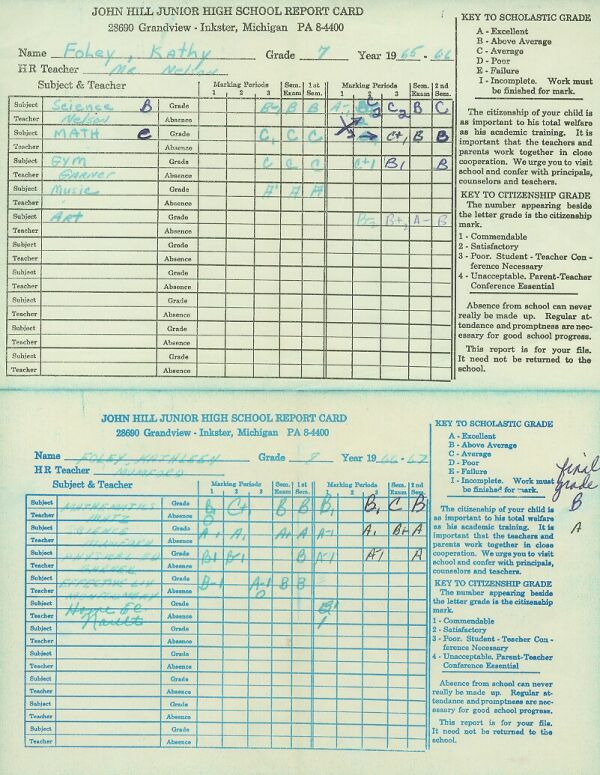 JOHN HILL JUNIOR HIGH SCHOOL REPORT CARD
28690 Grandview - Inkster, Michigan PA 8-4400
Name Foley, Kathy Grade 7 Year 1965-66
HR Teacher Mr. Nelson
Subject & Teacher Marking Periods Sem. 1st Marking Periods Sem. 2nd
1 2 3 Exam Sem. 1 2 3 Exam Sem.
Subject Science B Grade B- B B A- C2 B C
Teacher Nelson Absence
Subject MATH C Grade C, C C C+, B B
Teacher Absence
Subject Gym Grade C C C C+1 B1 B
Teacher Garner Absence
Subject Music Grade A A A
Teacher Absence
Subject Art Grade B+, A- B
Teacher Absence
Subject Grade
Teacher Absence
Subject Grade
Teacher Absence
Subject Grade
Teacher Absence
Subject Grade
Teacher Absence
Subject Grade
Teacher Absence
KEY TO SCHOLASTIC GRADE
A - Excellent
B - Above Average
C - Average
D - Poor
E - Failure
I - Incomplete. Work must
be finished for mark.
The citizenship of your child is
as important to his total welfare
as his academic training. It is
important that the teachers and
parents work together in close
cooperation. We urge you to visit
school and confer with principals,
counselors and teachers.
KEY TO CITIZENSHIP GRADE
The number appearing beside
the letter grade is the citizenship
mark.
1 - Commendable
2 - Satisfactory
3 - Poor. Student - Teacher Con -
ference Necessary
4 - Unacceptable. Parent-Teacher
Conference Essential
Absence from school can never
really be made up. Regular at-
tendance and promptness are nec-
essary for good school progress.
This report is for your file.
It need not be returned to the
school.
JOHN HILL JUNIOR HIGH SCHOOL REPORT CARD
28690 Grandview - Inkster, Michigan PA 8-4400
Name FOLEY, KATHLEEN Grade 8 Year 1966-67
HR Teacher MUMFORD
Subject & Teacher Marking Periods Sem. 1st Marking Periods Sem. 2nd
1 2 3 Exam Sem. 1 2 3 Exam Sem.
Subject MATHEMATICS Grade B, C+, B B B, B, C B
Teacher Absence
Subject SCIENCE Grade A-1 A, A+ A A-1 A, B+ A
Teacher MUMFORD Absence
Subject PHYSICAL ED Grade B1 B-1 B A-1 A-1 A
Teacher GARNER Absence
Subject EFFECTIVE LIV Grade B-1 A-1 B B
Teacher MONTGOMERY Absence
Subject Home Ec Grade
Teacher Absence
Subject Grade
Teacher Absence
Subject Grade
Teacher Absence
Subject Grade
Teacher Absence
Subject Grade
Teacher Absence
Subject Grade
Teacher Absence
KEY TO SCHOLASTIC GRADE
A - Excellent
B - Above Average
C - Average
D - Poor
E - Failure
I - Incomplete. Work must
be finished for mark.
final
grade
B
A
The citizenship of your child is
as important to his total welfare
as his academic training. It is
important that the teachers and
parents work together in close
cooperation. We urge you to visit
school and confer with principals,
counselors and teachers.
KEY TO CITIZENSHIP GRADE
The number appearing beside
the letter grade is the citizenship
mark.
1 - Commendable
2 - Satisfactory
3 - Poor. Student - Teacher Con -
ference Necessary
4 - Unacceptable. Parent-Teacher
Conference Essential
Absence from school can never
really be made up. Regular at-
tendance and promptness are nec-
essary for good school progress.
This report is for your file.
It need not be returned to the
school.